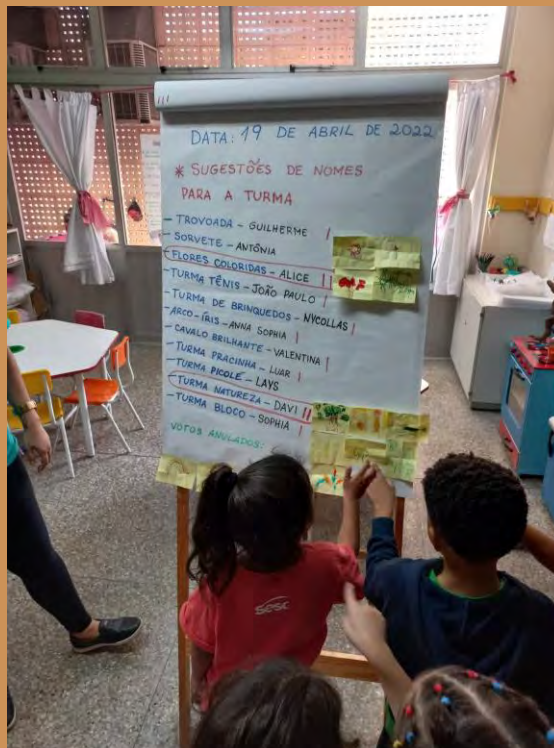 DATA: 19 DE ABRIL DE 2022
* SUGESTÕES DE NOMES
PARA A TURMA
- TROVOADA - GUILHERME |
- SORVETE - ANTÔNIA
- FLORES COLORIDAS - ALICE ||
- TURMA TÊNIS - JOÃO PAULO |
- TURMA DE BRINQUEDOS - NYCOLLAS |
- ARCO-ÍRIS - ANNA SOPHIA |
- CAVALO BRILHANTE - VALENTINA |
- TURMA PRACINHA - LUAR |
- TURMA PICOLÉ - LAYS
- TURMA NATUREZA - DAVI ||
- TURMA BLOCO - SOPHIA |
VOTOS ANULADOS:
Sesc